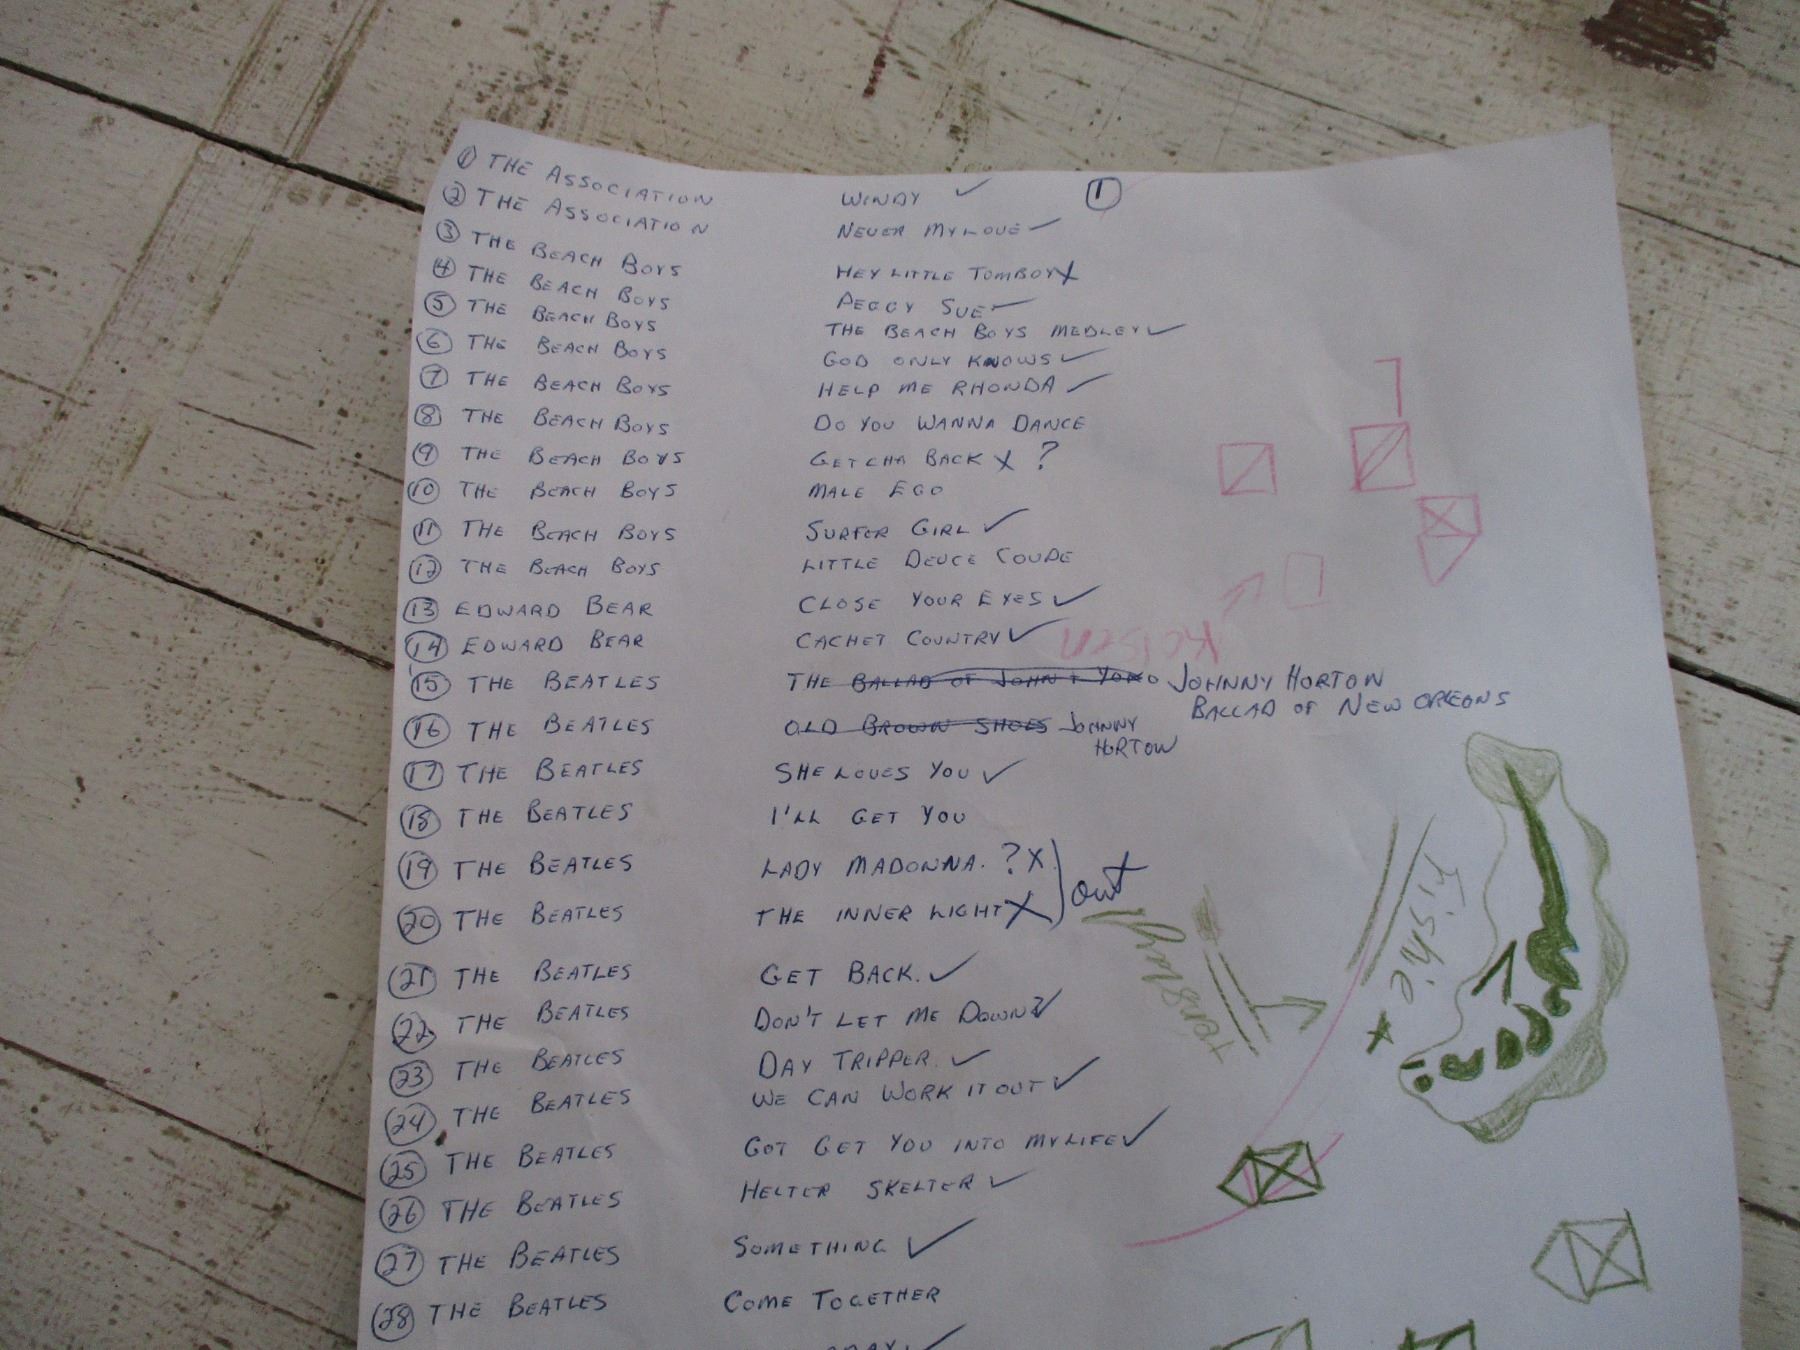 ① THE ASSOCIATION WINDY ✓ 1
② THE ASSOCIATION NEVER MY LOVE ✓
③ THE BEACH BOYS HEY LITTLE TOMBOY X
④ THE BEACH BOYS PEGGY SUE ✓
⑤ THE BEACH BOYS THE BEACH BOYS MEDLEY ✓
⑥ THE BEACH BOYS GOD ONLY KNOWS ✓
⑦ THE BEACH BOYS HELP ME RHONDA ✓
⑧ THE BEACH BOYS DO YOU WANNA DANCE
⑨ THE BEACH BOYS GETCHA BACK X ?
⑩ THE BEACH BOYS MALE EGO
⑪ THE BEACH BOYS SURFER GIRL ✓
⑫ THE BEACH BOYS LITTLE DEUCE COUPE
⑬ EDWARD BEAR CLOSE YOUR EYES ✓
⑭ EDWARD BEAR CACHET COUNTRY ✓
⑮ THE BEATLES THE BALLAD OF JOHN + YOKO JOHNNY HORTON
BALLAD OF NEW ORLEANS
⑯ THE BEATLES OLD BROWN SHOES JOHNNY
HORTON
⑰ THE BEATLES SHE LOVES YOU ✓
⑱ THE BEATLES I'LL GET YOU
⑲ THE BEATLES LADY MADONNA. ? X
out
⑳ THE BEATLES THE INNER LIGHT X
㉑ THE BEATLES GET BACK. ✓
㉒ THE BEATLES DON'T LET ME DOWN ? ✓
㉓ THE BEATLES DAY TRIPPER. ✓
㉔ THE BEATLES WE CAN WORK IT OUT ✓
㉕ THE BEATLES GOT GET YOU INTO MY LIFE ✓
㉖ THE BEATLES HELTER SKELTER ✓
㉗ THE BEATLES SOMETHING ✓
㉘ THE BEATLES COME TOGETHER
Fishie